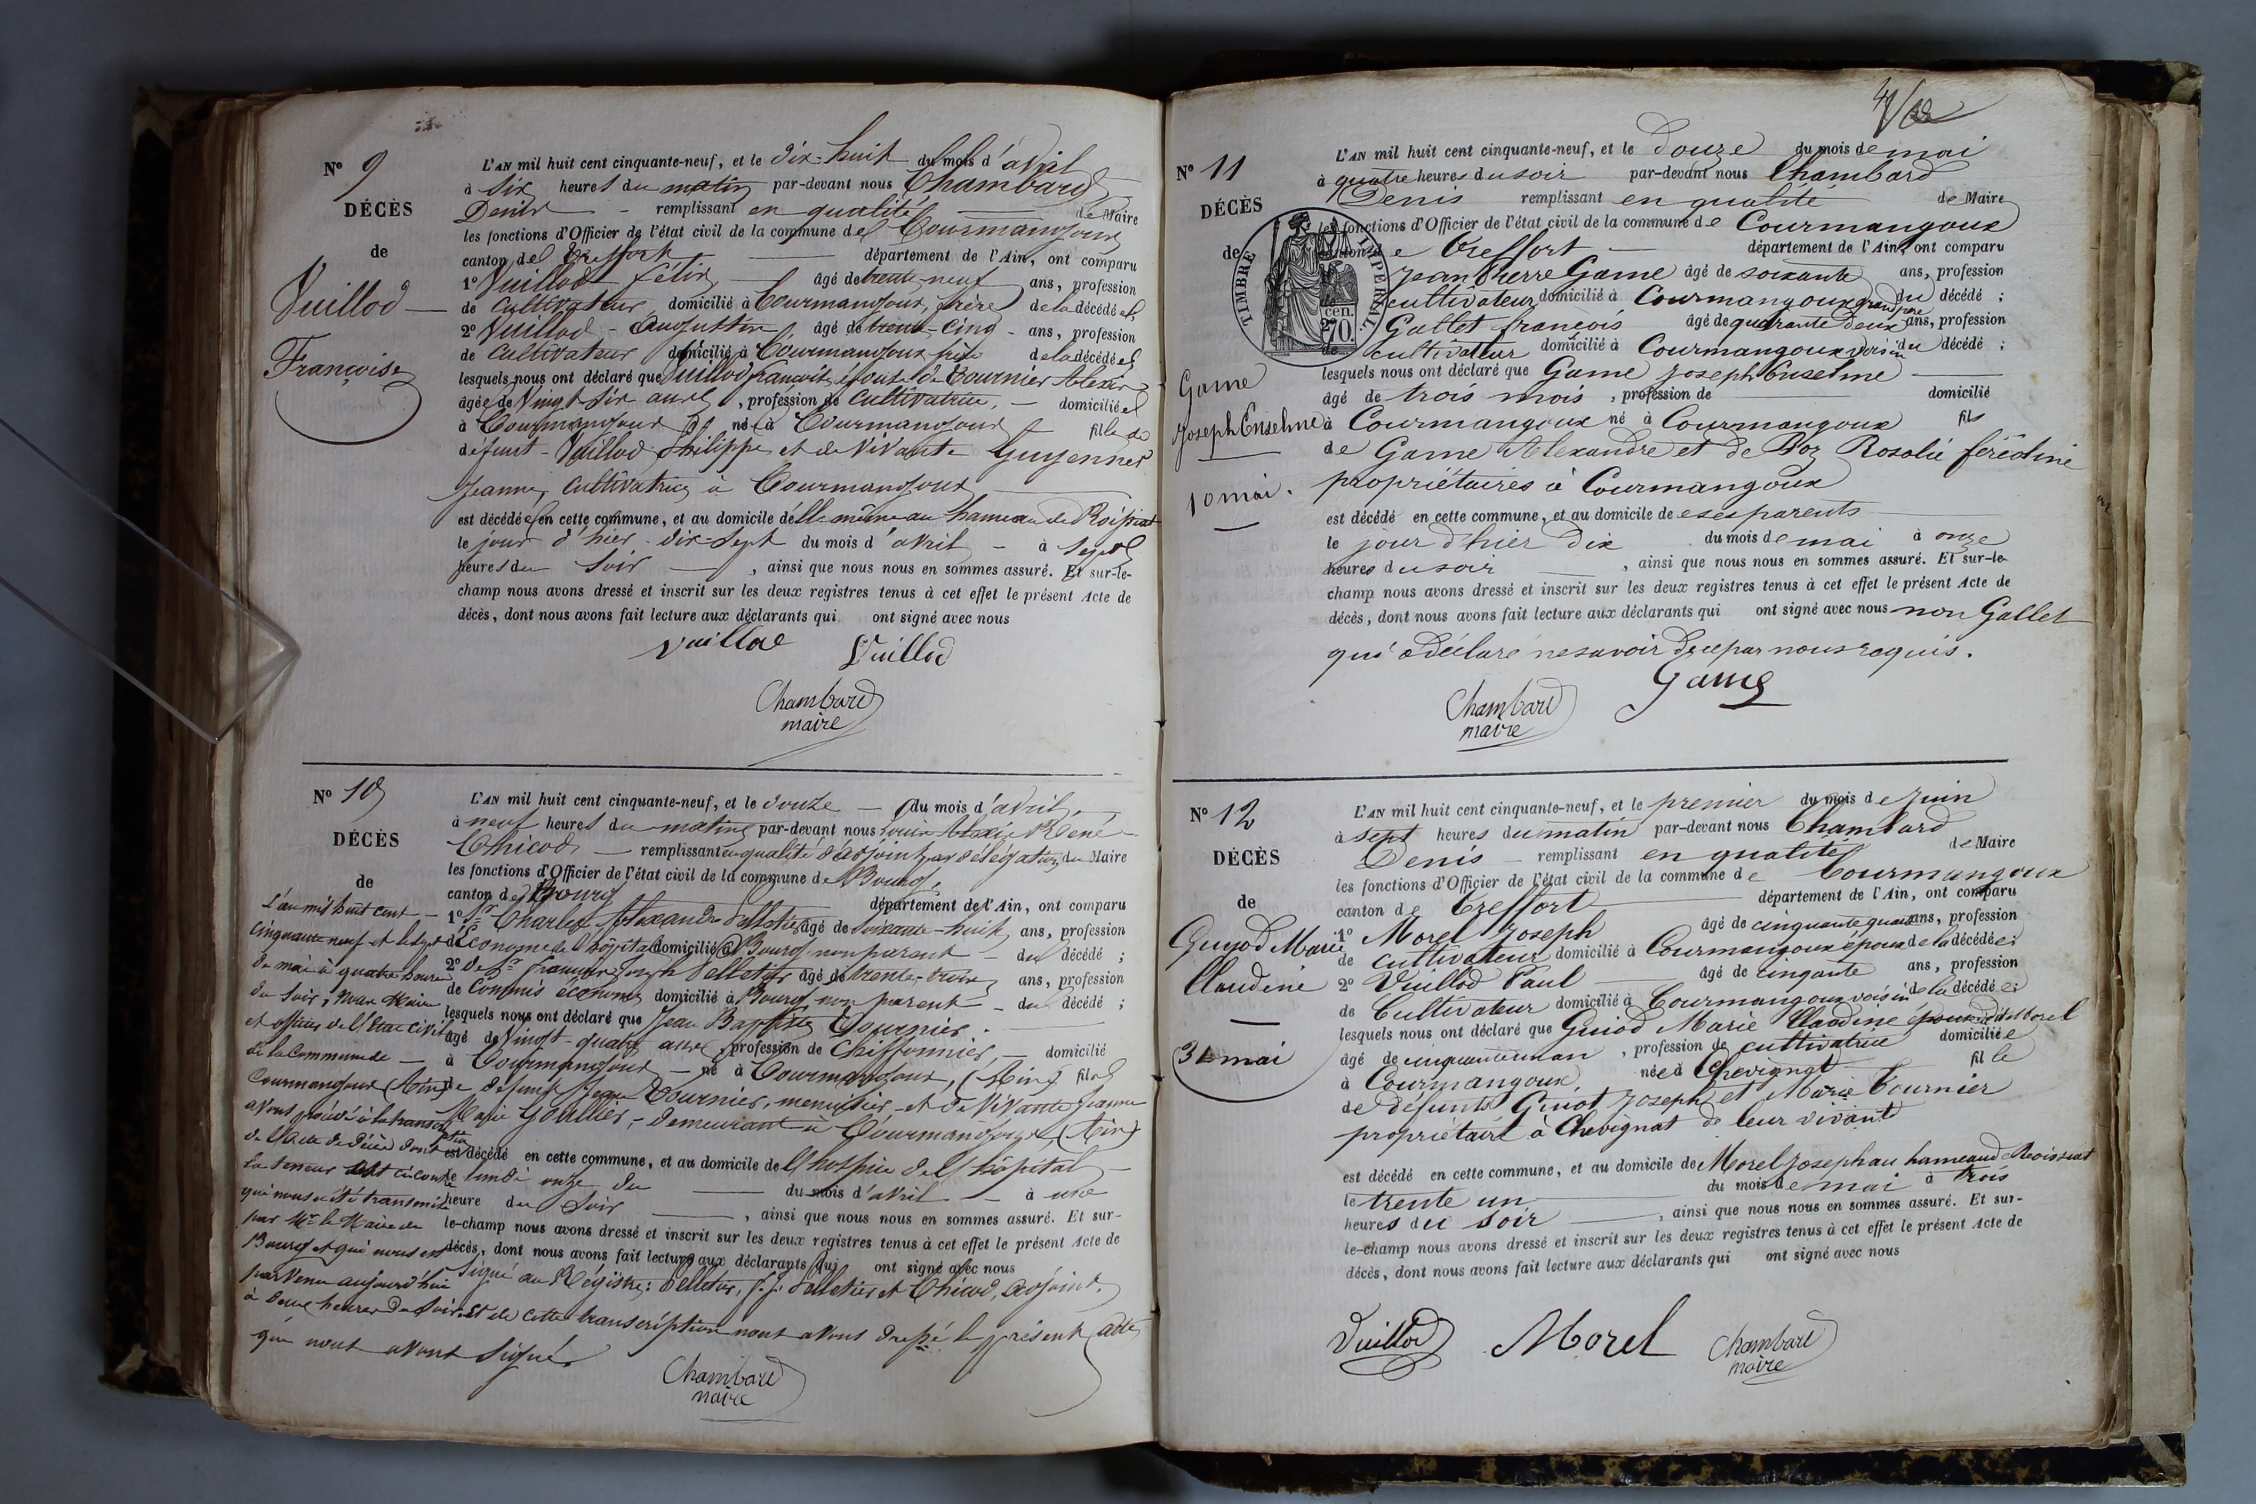 N° 9
DÉCÈS
de
Vuillod
Françoise
L'AN mil huit cent cinquante-neuf, et le dix-huit du mois d'avril
à six heures du matin par-devant nous Chambard
Denis remplissant en qualité de Maire
les fonctions d'Officier de l'état civil de la commune de Courmangoux
canton de Treffort département de l'Ain, ont comparu
1° Vuillod Félix âgé de trente-neuf ans, profession
de cultivateur domicilié à Courmangoux, frère de la décédée,
2° Vuillod Augustin âgé de trente-cinq ans, profession
de cultivateur domicilié à Courmangoux frère de la décédée
lesquels nous ont déclaré que Vuillod françoise, épouse de Tournier Alexis
âgée de Vingt-six ans, profession de Cultivatrice, domiciliée
à Courmangoux née à Courmangoux fille de
défunt Vuillod Philippe et de Vivante Guyennet
Jeanne, Cultivatrice à Courmangoux
est décédée en cette commune, et au domicile d'elle même au hameau de Roissiat
le jour d'hier dix-sept du mois d'avril à sept
heures du soir, ainsi que nous nous en sommes assuré. Et sur-le-
champ nous avons dressé et inscrit sur les deux registres tenus à cet effet le présent Acte de
décès, dont nous avons fait lecture aux déclarants qui ont signé avec nous
Vuillod Vuillod
Chambard
maire
N° 10
DÉCÈS
de
L'an mil huit cent
cinquante-neuf et le sept
de mai à quatre heures
du soir, nous Maire
et officier de l'Etat civil
de la Commune de
Courmangoux (Ain)
avons procédé à la transcription
de l'acte de décès dont
la teneur est ci-contre
qui nous a été transmis
par Mr le Maire de
Bourg et qui nous est
parvenu aujourd'hui
à deux heures du soir. Et de cette transcription nous avons dressé le présent acte
que nous avons signé.
L'AN mil huit cent cinquante-neuf, et le douze du mois d'avril,
à neuf heures du matin par-devant nous Louis Alexis Réné
Chicod remplissant en qualité d'adjoint par délégation du Maire
les fonctions d'Officier de l'état civil de la commune de Bourg,
canton de Bourg département de l'Ain, ont comparu
1° Sr Charles Alexandre Pelletier âgé de soixante-huit ans, profession
d'Econome de l'hôpital domicilié à Bourg non parent du décédé ;
2° de Sr françois Joseph Pelletier âgé de trente-trois ans, profession
de Commis économe domicilié à Bourg, non parent du décédé ;
lesquels nous ont déclaré que Jean Baptiste Tournier,
âgé de Vingt-quatre ans, profession de Chiffonnier, domicilié
à Courmangoux né à Courmangoux, (Ain) fils
de défunt Jean Tournier, menuisier, et de Vivante Jeanne
Marie Goullier, demeurant à Courmangoux (Ain)
est décédé en cette commune, et au domicile de l'hospice de l'hôpital
le lundi onze du du mois d'avril à une
heure du soir, ainsi que nous nous en sommes assuré. Et sur-
le-champ nous avons dressé et inscrit sur les deux registres tenus à cet effet le présent Acte de
décès, dont nous avons fait lecture aux déclarants qui ont signé avec nous
Signé au Régistre : Pelletier, f. j. Pelletier et Chicod, adjoint.
Chambard
maire
N° 11
DÉCÈS
de
TIMBRE IMPERIAL
cen.
70.
Game
Joseph Enselme
10 mai.
L'AN mil huit cent cinquante-neuf, et le douze du mois de mai
à quatre heures du soir par-devant nous Chambard
Denis remplissant en qualité de Maire
les fonctions d'Officier de l'état civil de la commune de Courmangoux
canton de Treffort département de l'Ain, ont comparu
Jean Pierre Game âgé de soixante ans, profession
cultivateur domicilié à Courmangoux grand père du décédé ;
2° Gallet françois âgé de quarante deux ans, profession
de cultivateur domicilié à Courmangoux voisin du décédé ;
lesquels nous ont déclaré que Game Joseph Enselme
âgé de trois mois, profession de domicilié
à Courmangoux né à Courmangoux fils
de Game Alexandre et de Boz Rosalie féréoline
propriétaires à Courmangoux
est décédé en cette commune, et au domicile de ses parents
le jour d'hier dix du mois de mai à onze
heures du soir, ainsi que nous nous en sommes assuré. Et sur-le-
champ nous avons dressé et inscrit sur les deux registres tenus à cet effet le présent Acte de
décès, dont nous avons fait lecture aux déclarants qui ont signé avec nous non Gallet
qui a déclaré ne savoir de ce par nous requis.
Chambard
maire
Game
N° 12
DÉCÈS
de
Guyod Marie
Claudine
31 mai
L'AN mil huit cent cinquante-neuf, et le premier du mois de Juin
à sept heures du matin par-devant nous Chambard
Denis remplissant en qualité de Maire
les fonctions d'Officier de l'état civil de la commune de Courmangoux
canton de Treffort département de l'Ain, ont comparu
1° Morel Joseph âgé de cinquante quatre ans, profession
de cultivateur domicilié à Courmangoux époux de la décédée ;
2° Vuillod Paul âgé de cinqante ans, profession
de Cultivateur domicilié à Courmangoux voisin de la décédée ;
lesquels nous ont déclaré que Guiod Marie Claudine épouse dudit Morel
âgé de cinquante un an, profession de cultivatrice domiciliée
à Courmangoux, née à Chevignat fille
de défunts Guiot Joseph et Marie Tournier
propriétaire à Chevignat de leur vivant
est décédé en cette commune, et au domicile de Morel Joseph au hameau de Roissiat
le trente un du mois de mai à trois
heures du soir, ainsi que nous nous en sommes assuré. Et sur-
le-champ nous avons dressé et inscrit sur les deux registres tenus à cet effet le présent Acte de
décès, dont nous avons fait lecture aux déclarants qui ont signé avec nous
Vuillod Morel Chambard
maire